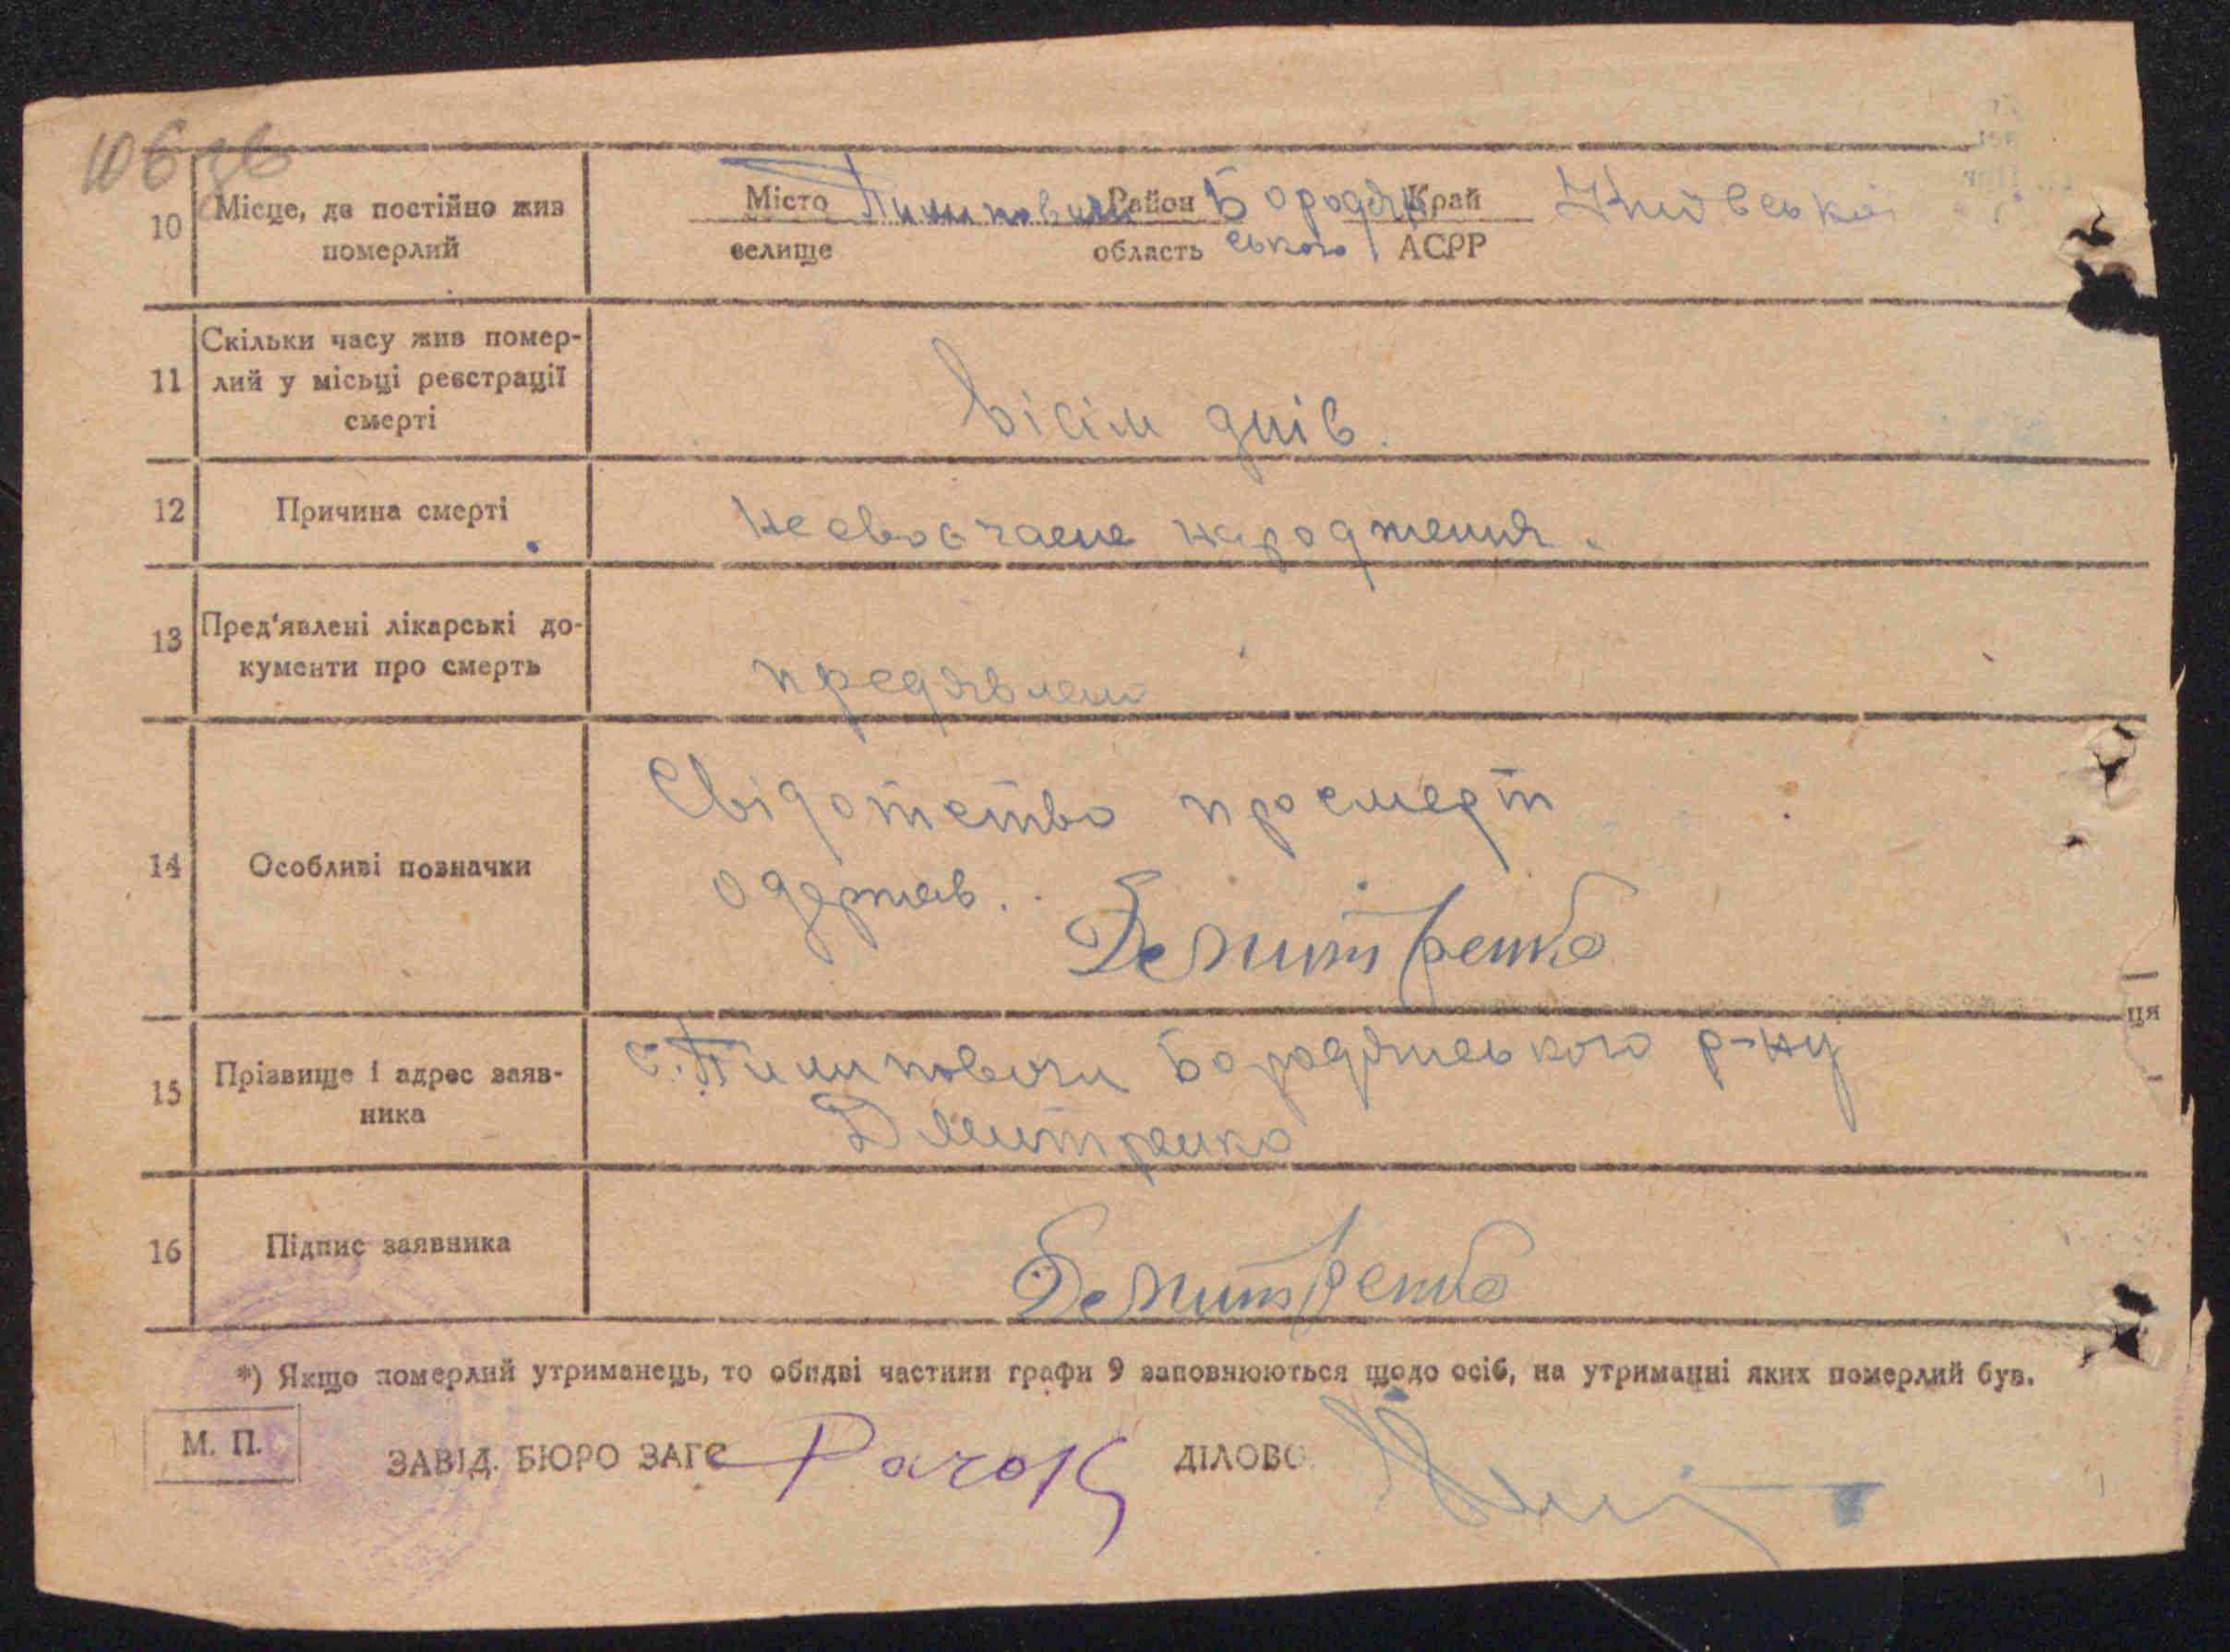 106 зв
10 Місце, де постійно жив померлий
Місто Пилиповичі Район Бородян Край Київської
селище область ського АСРР
11 Скільки часу жив помер-
лий у місьці реєстрації
смерті
вісім днів.
12 Причина смерті несвоєчасне народження.
13 Пред'явлені лікарські до-
кументи про смерть
предявлено
Свідотство просмерт
14 Особливі позначки
одержав.
Демитренко
15 Прізвище і адрес заяв-
ника
с. Пилиповичи Бородянського р-ну
Дмитренко
16 Підпис заявника
Демитренко
*) Якщо померлий утриманець, то обидві частини графи 9 заповнюються щодо осіб, на утриманні яких померлий був.
М. П.
ЗАВІД. БЮРО ЗАГС Рачок ДІЛОВО
ця